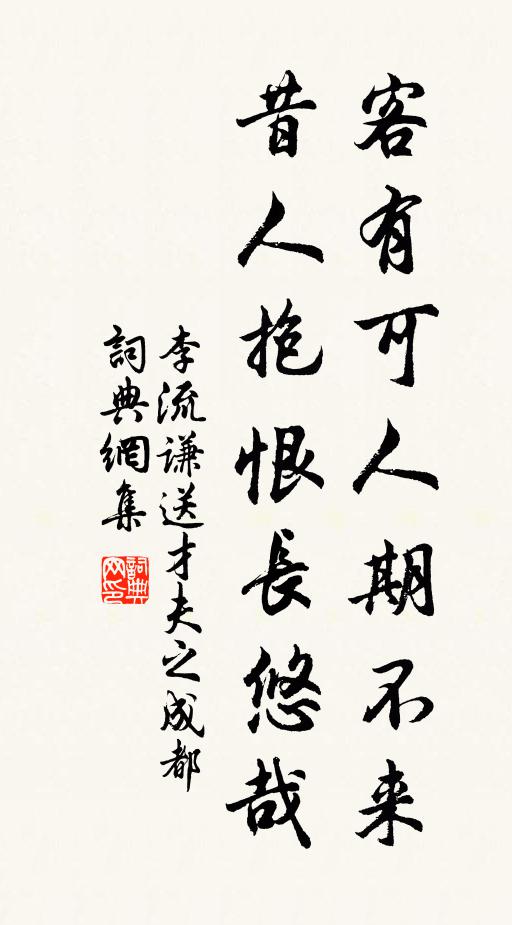 客有可人期不来
昔人抱恨長悠哉
李流谦送才夫之成都
詞典網集
詞典网印